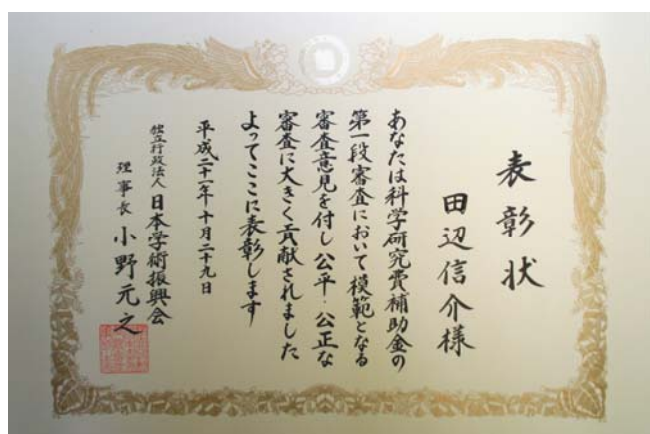 表彰状
田辺信介様
あなたは科学研究費補助金の
第一段審査において模範となる
審査意見を付し公平・公正な
審査に大きく貢献されました
よってここに表彰します
平成二十一年十月二十九日
独立行政法人日本学術振興会
理事長 小野元之